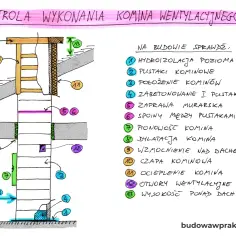 TROLA WYKONANIA KOMINA WENTYLACYJNEGO
NA BUDOWIE SPRAWDŹ:
1 HYDROIZOLACJA POZIOMA
2 PUSTAKI KOMINOWE
3 POŁOŻENIE KOMINÓW
4 ZABETONOWANIE I PUSTAK
5 ZAPRAWA MURARSKA
6 SPOINY MIĘDZY PUSTAKAMI
7 PIONOWOŚĆ KOMINA
8 DYLATACJA KOMINA
9 WZMOCNIENIE NAD DACHE
10 CZAPA KOMINOWA
11 OCIEPLENIE KOMINA
12 OTWORY WENTYLACYJNE
13 WYSOKOŚĆ PONAD DACH
budowawprak